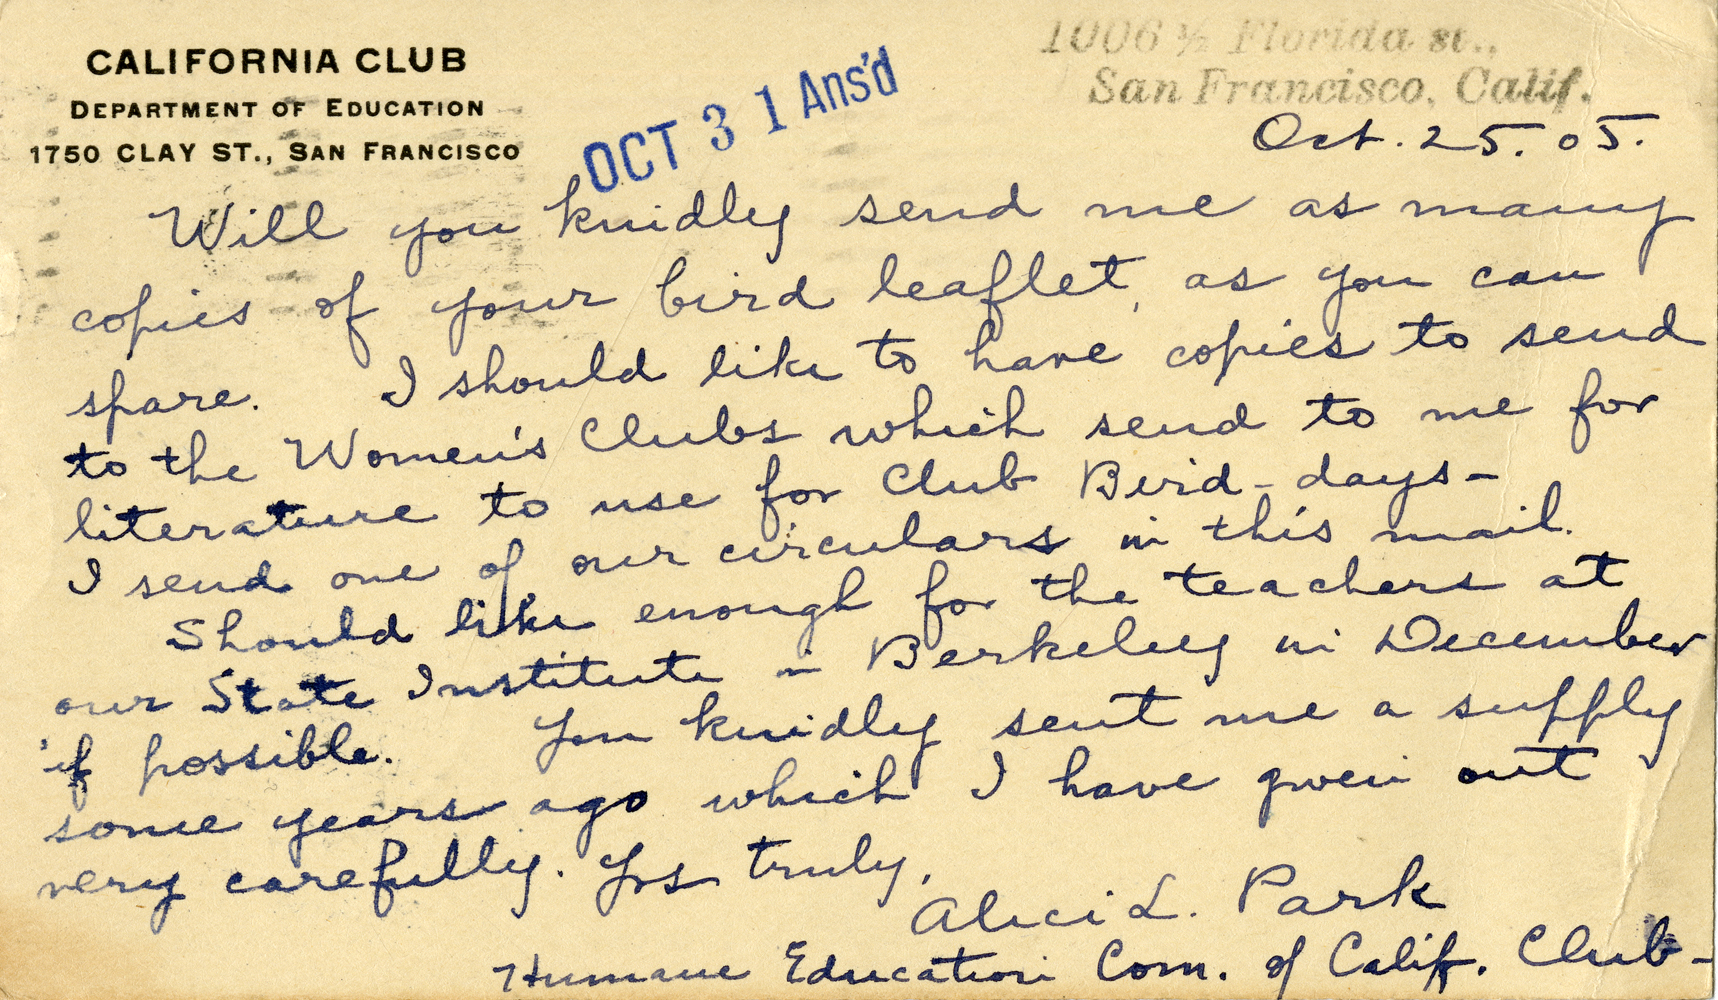 CALIFORNIA CLUB
DEPARTMENT OF EDUCATION
1750 CLAY ST., SAN FRANCISCO
OCT 31 Ans'd
1006 ½ Florida st.,
San Francisco, Calif.
Oct. 25. 05.
Will you kindly send me as many
copies of your bird leaflet, as you can
spare. I should like to have copies to send
to the Women's Clubs which send to me for
literature to use for Club Bird-days-
I send one of our circulars in this mail.
Should like enough for the teachers at
our State Institute - Berkeley in December
if possible. You kindly sent me a supply
some years ago which I have given out
very carefully. Yrs truly,
Alice L. Park
Humane Education Com. of Calif. Club-